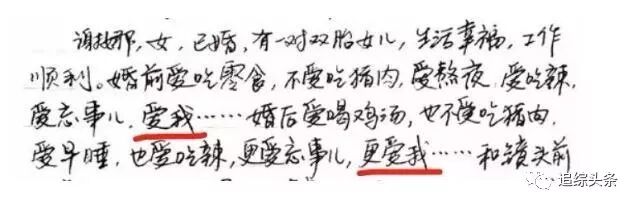 谢娜，女，已婚，有一对双胎女儿，生活幸福，工作
顺利。婚前爱吃零食，不爱吃猪肉，爱熬夜，爱吃辣，
爱忘事儿，爱我……婚后爱喝鸡汤，也不爱吃猪肉，
爱早睡，也爱吃辣，更爱忘事儿，更爱我……和镜头前
追综头条